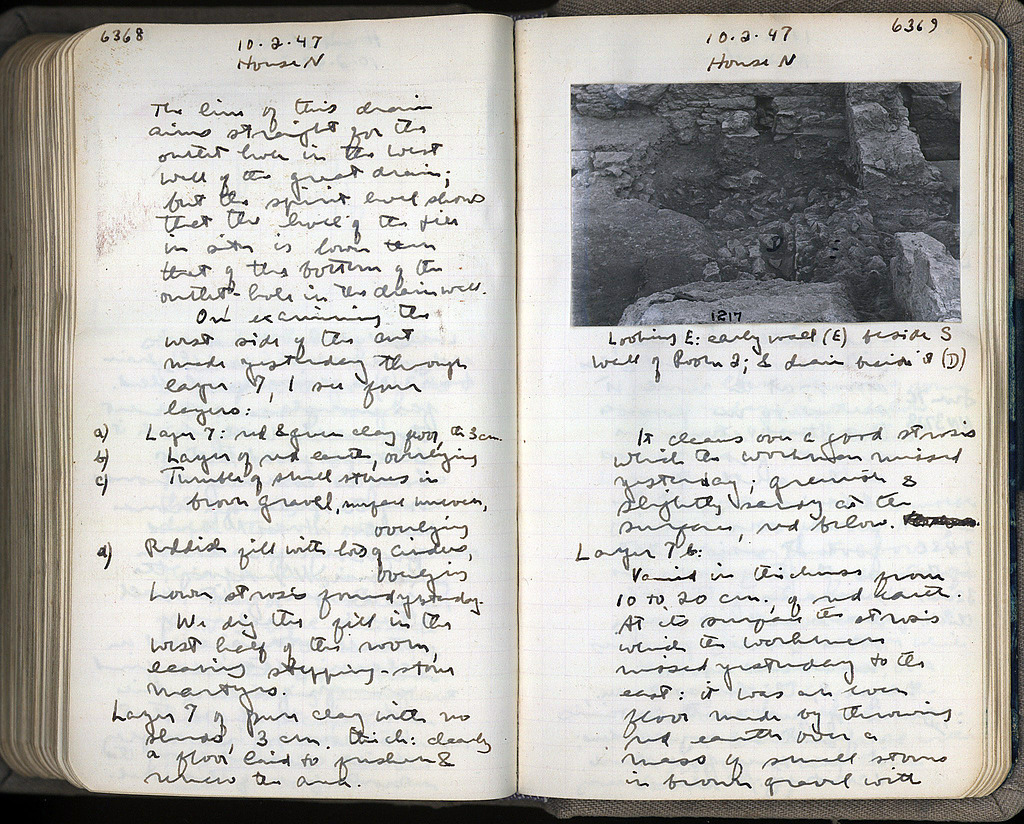 6368
10.2.47
House N
The line of this drain
aims straight for the
outlet hole in the west
wall of the great drain;
but the spirit level shows
that the level of the tiles
in situ is lower than
that of the bottom of the
outlet-hole in the drain wall.
On examining the
west side of the cut
made yesterday through
layer 7, I see four
layers:
a) Layer 7: red & green clay floor, th. 3 cm.
b) Layer of red earth, overlying
c) Tumble of small stones in
brown gravel, surface uneven,
overlying
d) Reddish fill with lots of cinders,
overlying
Lower strosis found yesterday.
We dig the fill in the
west half of the room,
leaving stepping-stone
martyrs.
Layer 7 of pure clay with no
sherds, 3 cm. thick: clearly
a floor laid to freshen &
renew the area.
6369
10.2.47
House N
1217
Looking E: early wall (E) beside S
wall of Room 3; & drain beside it (D)
It cleans over a good strosis
which the workmen missed
yesterday; greenish &
slightly sandy at the
surface, red below.
Layer 7 b:
Varied in thickness from
10 to 20 cm, of red earth.
At its surface the strosis
which the workmen
missed yesterday to the
east: it was an even
floor made by throwing
red earth over a
mass of small stones
in brown gravel with